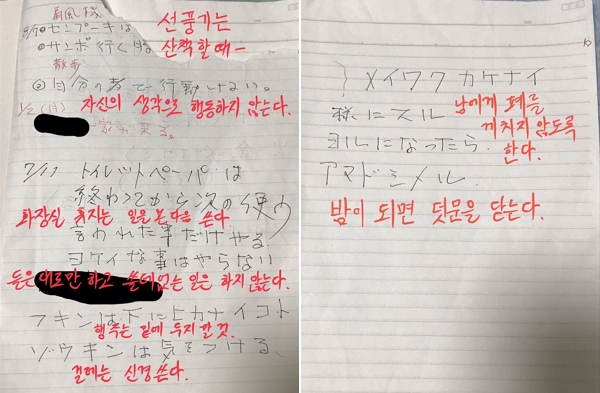 扇風機
8/9 センプーキは
선풍기는
サンポ行く時
산책할때-
散歩
自分の考で行動しない。
1/2(月) 자신의 생각으로 행동하지 않는다.
家が
7/17 トイレットペーパーは
終わってから次の使う
화장실 휴지는 일을 본 다음 쓴다
言われた事だけやる
ヨケイな事はやらない
들은 대로만 하고 쓸데없는 일은 하지 않는다.
フキンは下にヒカナイコト
행주는 밑에 두지 말 것.
ゾウキンは気をつける、
걸레는 신경쓴다.
メイワクカケナイ
様にスル
남에게 폐를
끼치지 않도록
한다.
ヨルになったら
アマドシメル
밤이 되면 덧문을 닫는다.